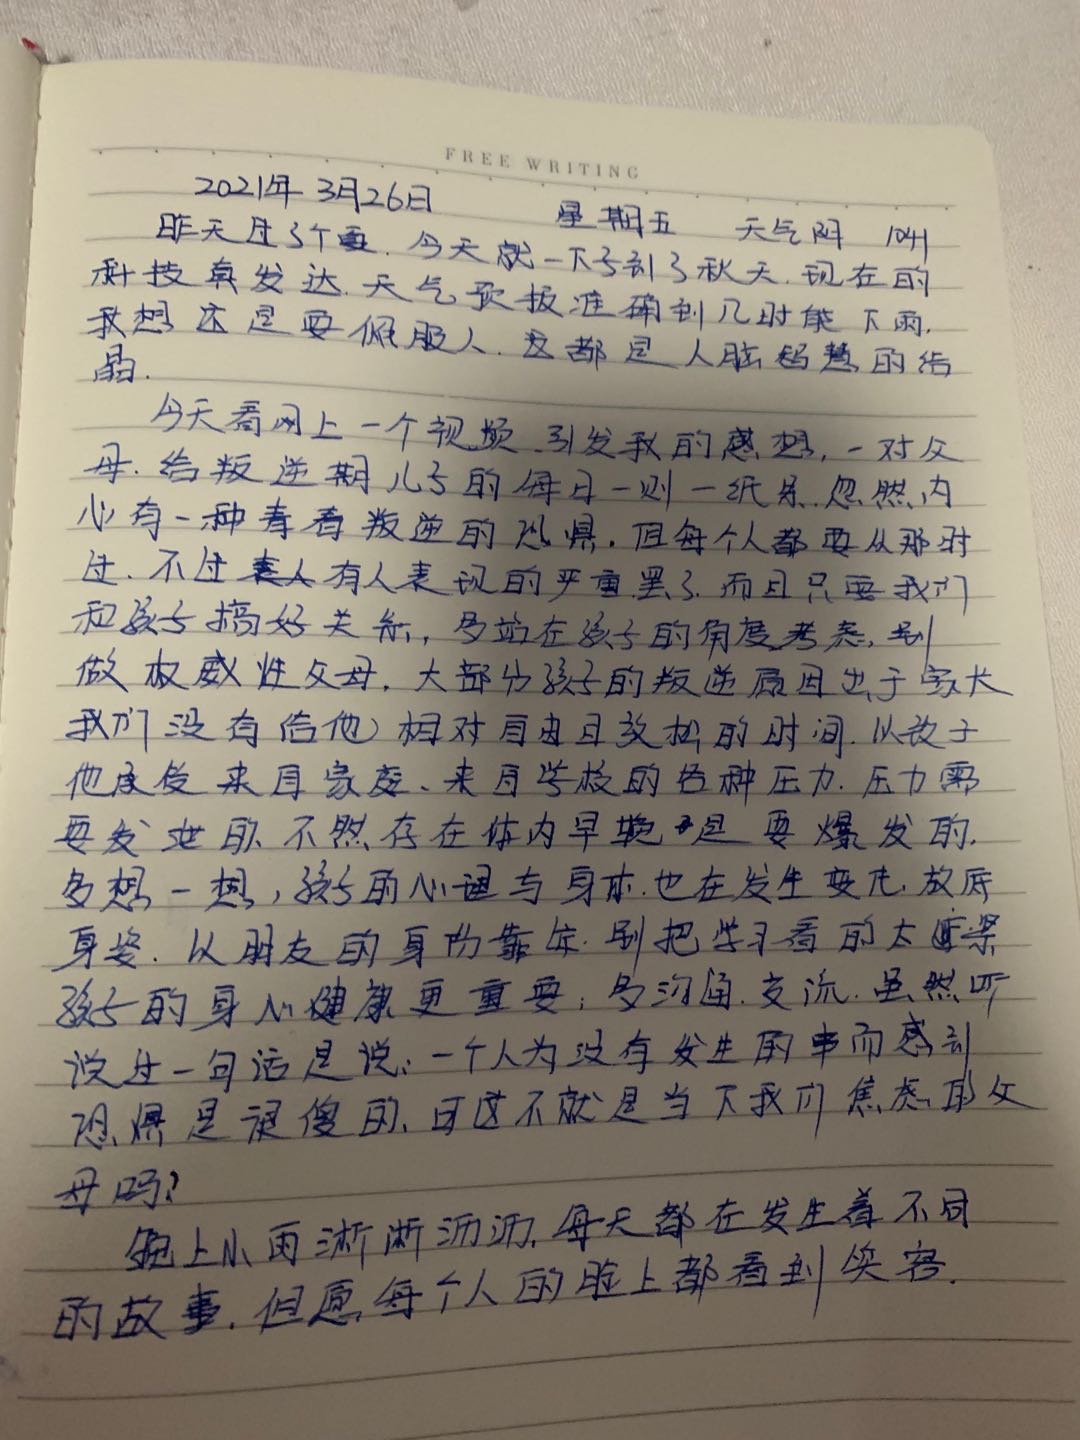 FREE WRITING
2021年3月26日 星期五 天气阴 1041
昨天过了个夏.今天就一下子到了秋天.现在的
科技真发达.天气预报准确到几时能下雨.
我想还是要佩服人.这都是人脑智慧的结
晶.
今天看网上一个视频.引发我的感想,一对父
母.给叛逆期儿子的每日一则一纸条.忽然内
心有一种青春叛逆的恐惧.但每个人都要从那时
过.不过有人表现的严重罢了.而且只要我们
和孩子搞好关系,多站在孩子的角度考虑,别
做权威性父母.大部分孩子的叛逆原因出于家长
我们没有给他相对自由且放松的时间.以致于
他承受来自家庭、来自学校的各种压力.压力需
要发泄的.不然存在体内早晚是要爆发的.
多想一想,孩子的心理与身体.也在发生变化.放底
身姿.以朋友的身份靠近.别把学习看的太重
孩子的身心健康更重要;多沟通.交流.虽然听
说过一句话是说:一个人为没有发生的事而感到
恐惧是很傻的.可这不就是当下我们焦虑的父
母吗?
晚上小雨淅淅沥沥.每天都在发生着不同
的故事.但愿每个人的脸上都看到笑容.